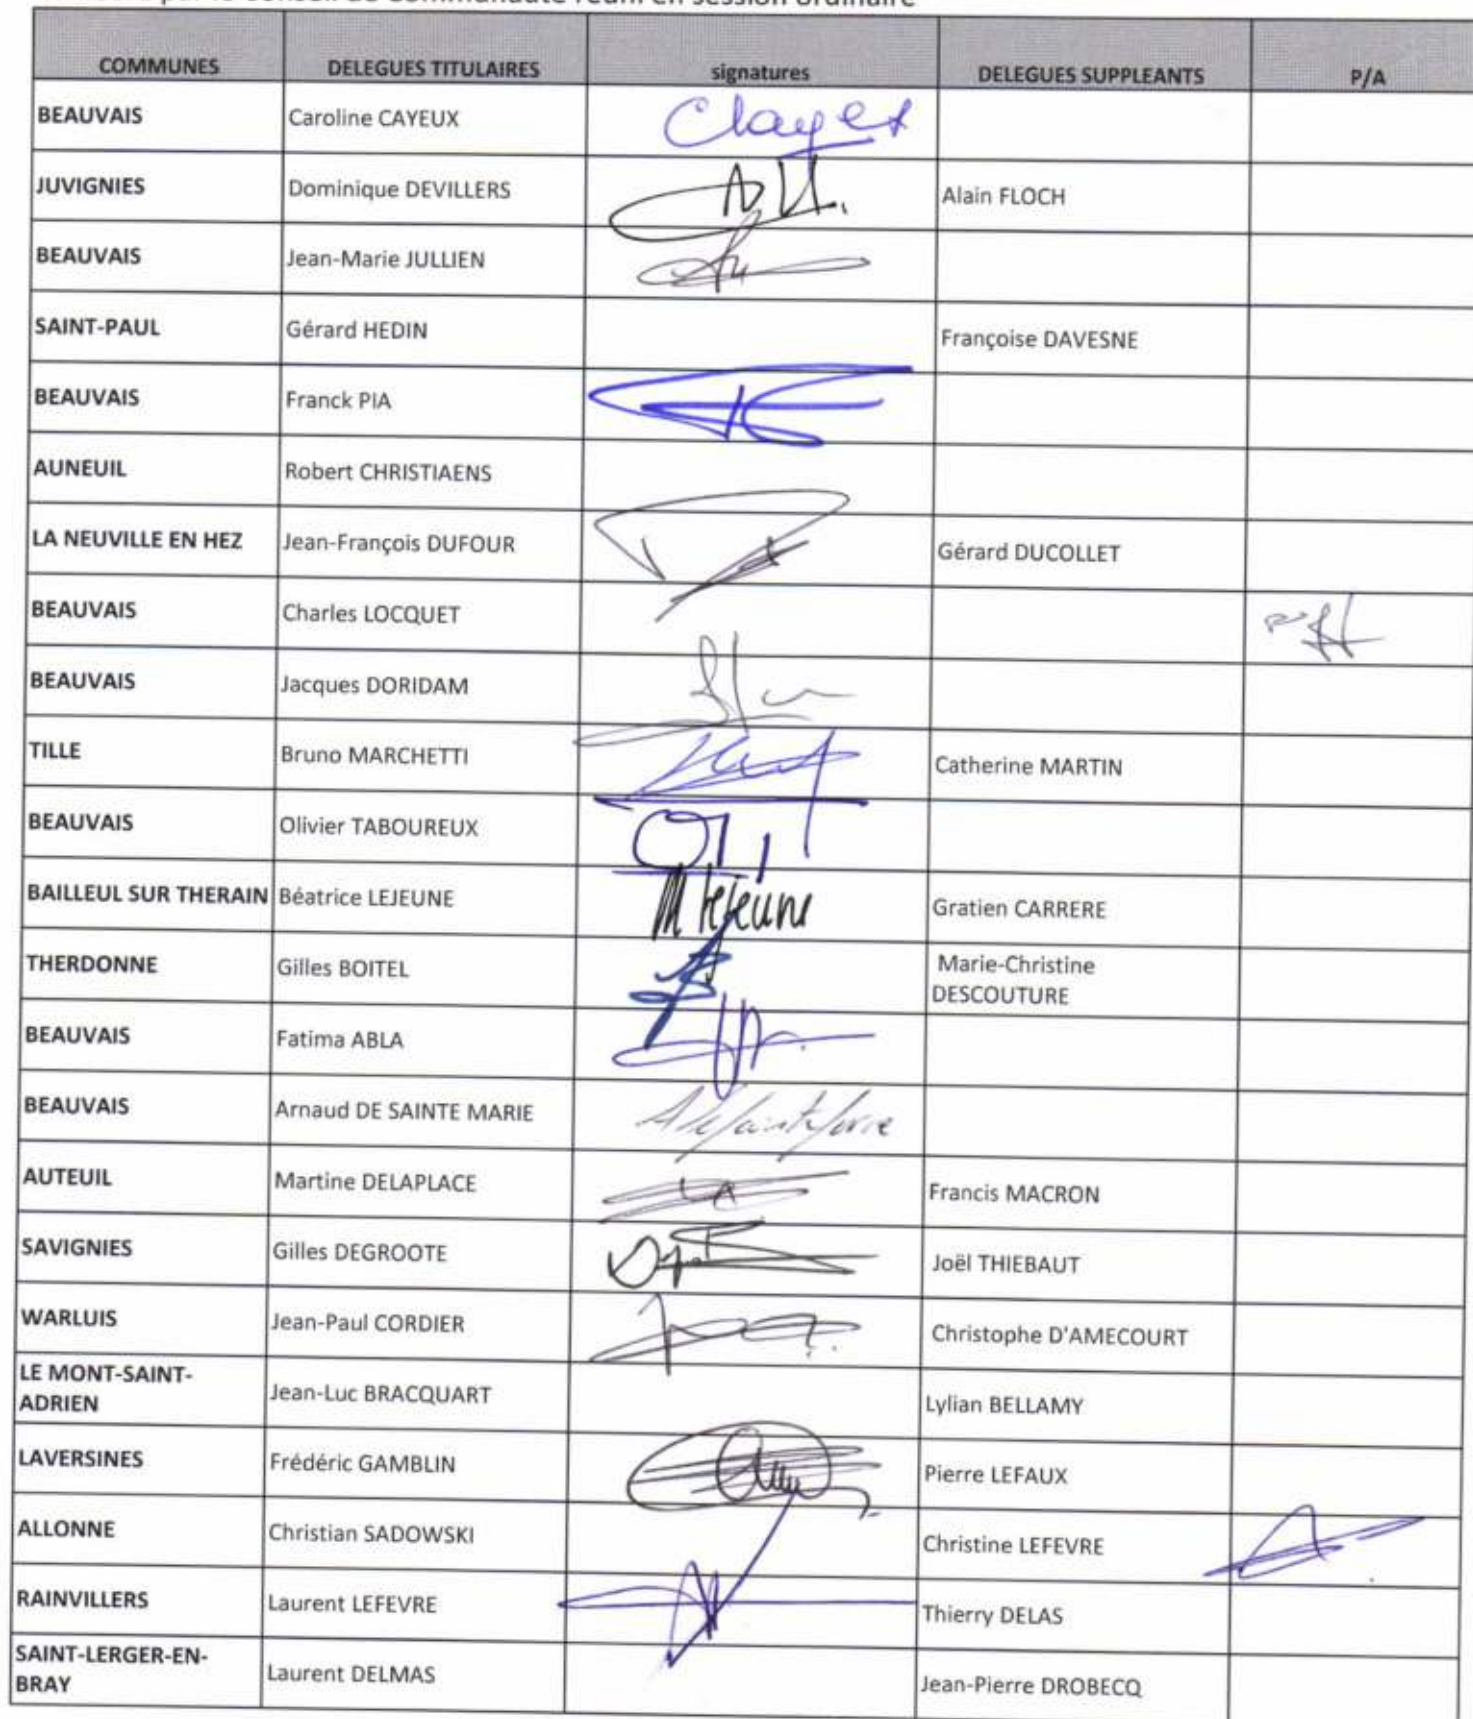 par le Conseil de Communauté réuni en session ordinaire
COMMUNES DELEGUES TITULAIRES signatures DELEGUES SUPPLEANTS P/A
BEAUVAIS Caroline CAYEUX
JUVIGNIES Dominique DEVILLERS Alain FLOCH
BEAUVAIS Jean-Marie JULLIEN
SAINT-PAUL Gérard HEDIN Françoise DAVESNE
BEAUVAIS Franck PIA
AUNEUIL Robert CHRISTIAENS
LA NEUVILLE EN HEZ Jean-François DUFOUR Gérard DUCOLLET
BEAUVAIS Charles LOCQUET
BEAUVAIS Jacques DORIDAM
TILLE Bruno MARCHETTI Catherine MARTIN
BEAUVAIS Olivier TABOUREUX
BAILLEUL SUR THERAIN Béatrice LEJEUNE Gratien CARRERE
THERDONNE Gilles BOITEL Marie-Christine
DESCOUTURE
BEAUVAIS Fatima ABLA
BEAUVAIS Arnaud DE SAINTE MARIE
AUTEUIL Martine DELAPLACE Francis MACRON
SAVIGNIES Gilles DEGROOTE Joël THIEBAUT
WARLUIS Jean-Paul CORDIER Christophe D'AMECOURT
LE MONT-SAINT-
ADRIEN Jean-Luc BRACQUART Lylian BELLAMY
LAVERSINES Frédéric GAMBLIN Pierre LEFAUX
ALLONNE Christian SADOWSKI Christine LEFEVRE
RAINVILLERS Laurent LEFEVRE Thierry DELAS
SAINT-LERGER-EN-
BRAY Laurent DELMAS Jean-Pierre DROBECQ